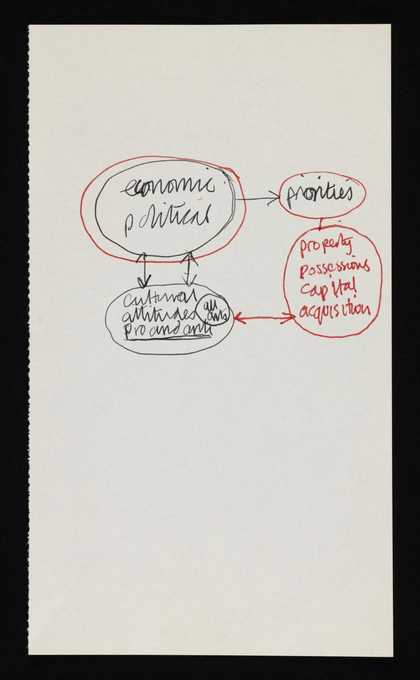 economic
political
priorities
property
possessions
capital
acquisition
cultural
attitudes
pro and anti
all
arts